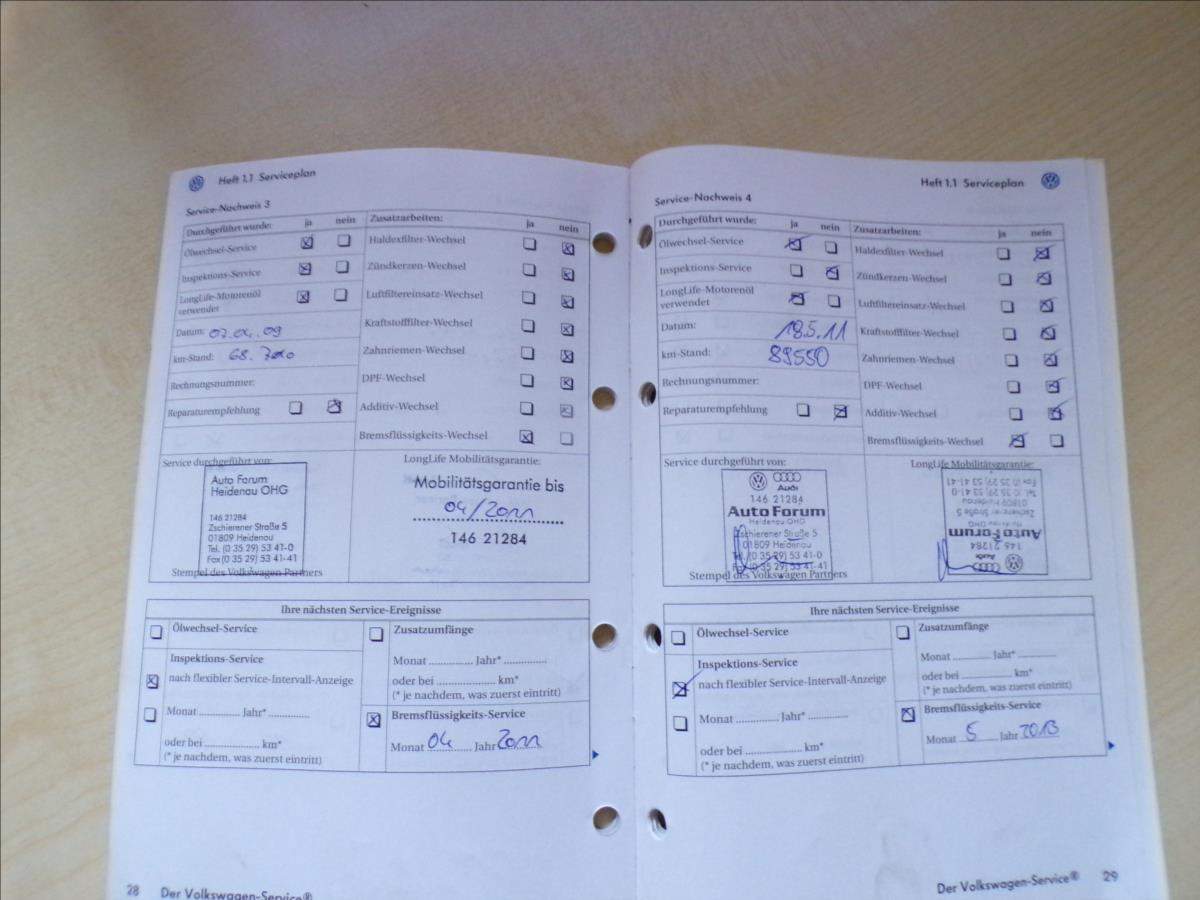 Heft 1.1 Serviceplan
Service-Nachweis 3
Durchgeführt wurde: ja nein
Ölwechsel-Service
Inspektions-Service
LongLife-Motorenöl
verwendet
Datum: 07.04.09
km-Stand: 68.700
Rechnungsnummer:
Reparaturempfehlung
Zusatzarbeiten: ja nein
Haldexfilter-Wechsel
Zündkerzen-Wechsel
Luftfiltereinsatz-Wechsel
Kraftstofffilter-Wechsel
Zahnriemen-Wechsel
DPF-Wechsel
Additiv-Wechsel
Bremsflüssigkeits-Wechsel
Service durchgeführt von:
Auto Forum
Heidenau OHG
146 21284
Zschierener Straße 5
01809 Heidenau
Tel. (0 35 29) 53 41-0
Fax (0 35 29) 53 41-41
Stempel des Volkswagen Partners
LongLife Mobilitätsgarantie:
Mobilitätsgarantie bis
04/2011
146 21284
Ihre nächsten Service-Ereignisse
Ölwechsel-Service
Inspektions-Service
nach flexibler Service-Intervall-Anzeige
Monat .............. Jahr* ..............
oder bei .................... km*
(* je nachdem, was zuerst eintritt)
Zusatzumfänge
Monat .............. Jahr* ..............
oder bei .................... km*
(* je nachdem, was zuerst eintritt)
Bremsflüssigkeits-Service
Monat 04 Jahr 2011
28 Der Volkswagen-Service®
Heft 1.1 Serviceplan
Service-Nachweis 4
Durchgeführt wurde: ja nein
Ölwechsel-Service
Inspektions-Service
LongLife-Motorenöl
verwendet
Datum: 18.5.11
km-Stand: 89550
Rechnungsnummer:
Reparaturempfehlung
Zusatzarbeiten: ja nein
Haldexfilter-Wechsel
Zündkerzen-Wechsel
Luftfiltereinsatz-Wechsel
Kraftstofffilter-Wechsel
Zahnriemen-Wechsel
DPF-Wechsel
Additiv-Wechsel
Bremsflüssigkeits-Wechsel
Service durchgeführt von:
Audi
146 21284
Auto Forum
Heidenau OHG
Zschierener Straße 5
01809 Heidenau
Tel. (0 35 29) 53 41-0
Fax (0 35 29) 53 41-41
Stempel des Volkswagen Partners
LongLife Mobilitätsgarantie:
Audi
146 21284
Auto Forum
Heidenau OHG
Zschierener Straße 5
01809 Heidenau
Tel. (0 35 29) 53 41-0
Fax (0 35 29) 53 41-41
Ihre nächsten Service-Ereignisse
Ölwechsel-Service
Inspektions-Service
nach flexibler Service-Intervall-Anzeige
Monat .............. Jahr* ..............
oder bei .................... km*
(* je nachdem, was zuerst eintritt)
Zusatzumfänge
Monat .............. Jahr* ..............
oder bei .................... km*
(* je nachdem, was zuerst eintritt)
Bremsflüssigkeits-Service
Monat 5 Jahr 2013
Der Volkswagen-Service® 29